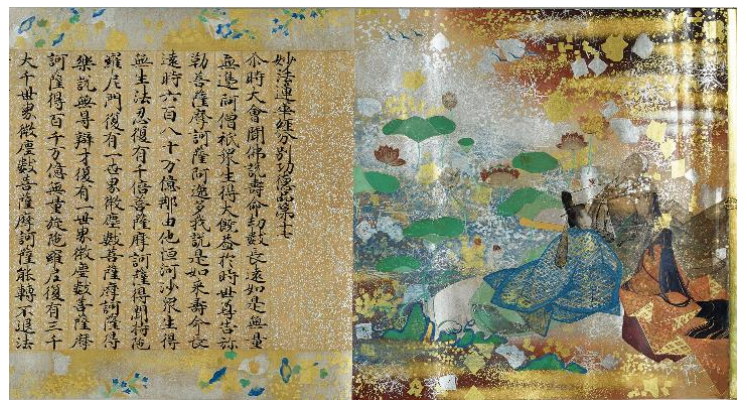 妙法蓮華經分別功德品第十七
尒時大會聞佛說壽命劫數長遠如是無量
無邊阿僧祇衆生得大饒益於時世尊告弥
勒菩薩摩訶薩阿逸多我說是如来壽命長
遠時六百八十万億那由他恒河沙衆生得
無生法忍復有千倍菩薩摩訶薩得聞持陁
羅尼門復有一世界微塵數菩薩摩訶薩得
樂說無礙辯才復有一世界微塵數菩薩摩
訶薩得百千万億無量旋陁羅尼復有三千
大千世界微塵數菩薩摩訶薩能轉不退法